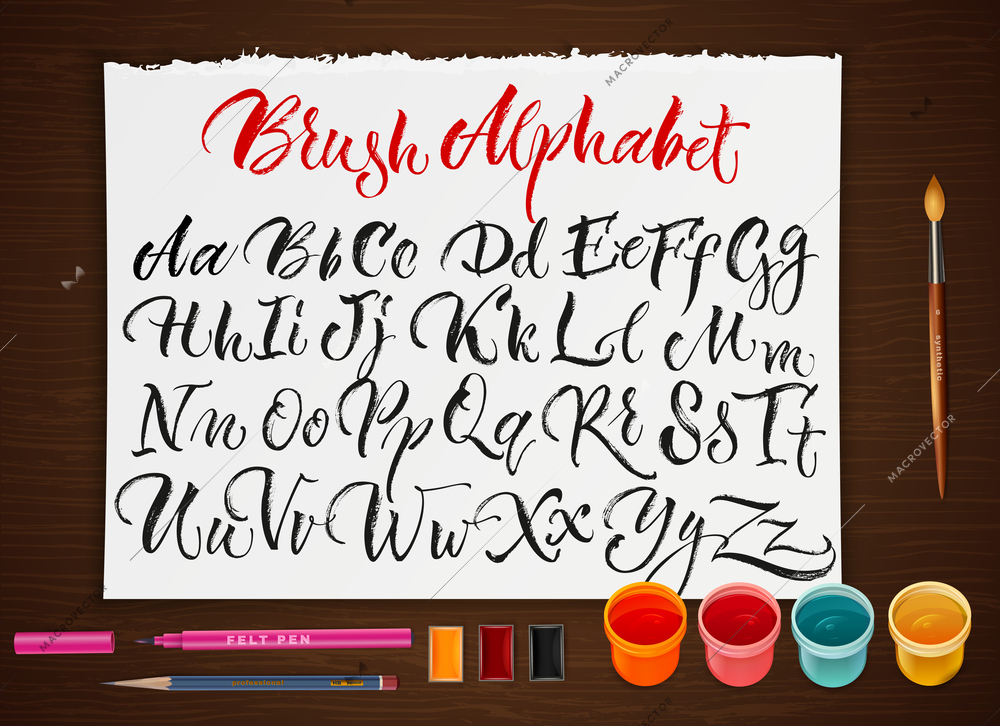 Brush Alphabet
Aa Bb Cc Dd Ee Ff Gg
Hh Ii Jj Kk Ll Mm
Nn Oo Pp Qq Rr Ss Tt
Uu Vv Ww Xx Yy Zz
8 synthetic
FELT PEN
professional HB
MACROVECTOR
MACROVECTOR
MACROVECTOR
MACROVECTOR